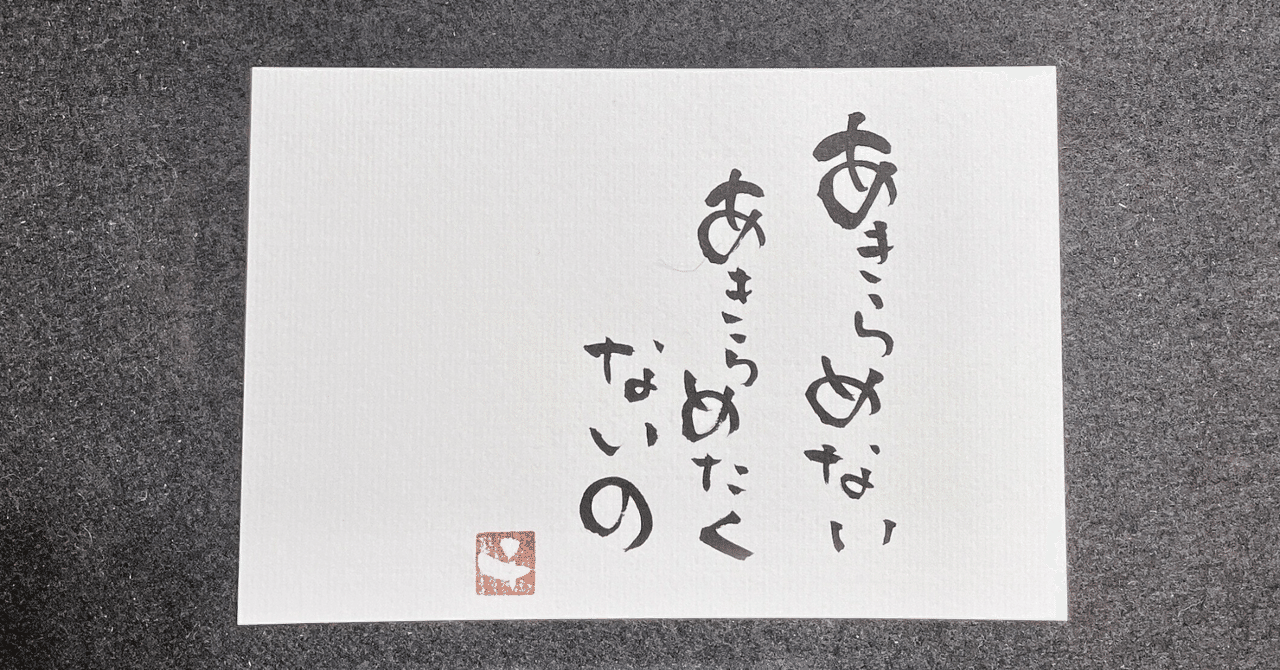 あきらめない
あきらめたく
ないの